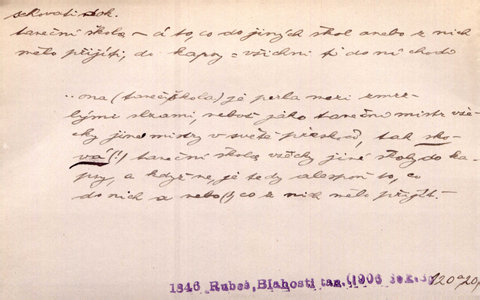 schovati dok.
taneční škola – á to, co do jiných škol anebo z nich
mělo přijíti, do kapsy = všichni ti do ní chodí
..ona (taneč. škola) jé perla mezi zmrz-
lými slzami, neboť jáko taneční mistr vše-
cky jiné mistry v světě přeskočí, tak sko-
vá(!) taneční škola všecky jiné školy do ka-
psy, a když ne, jé tedy alespoň to, co
do nich a nebo(!) co z nich mělo přijít.–
1846 Rubeš, Blahosti tan. (1906 120a20,